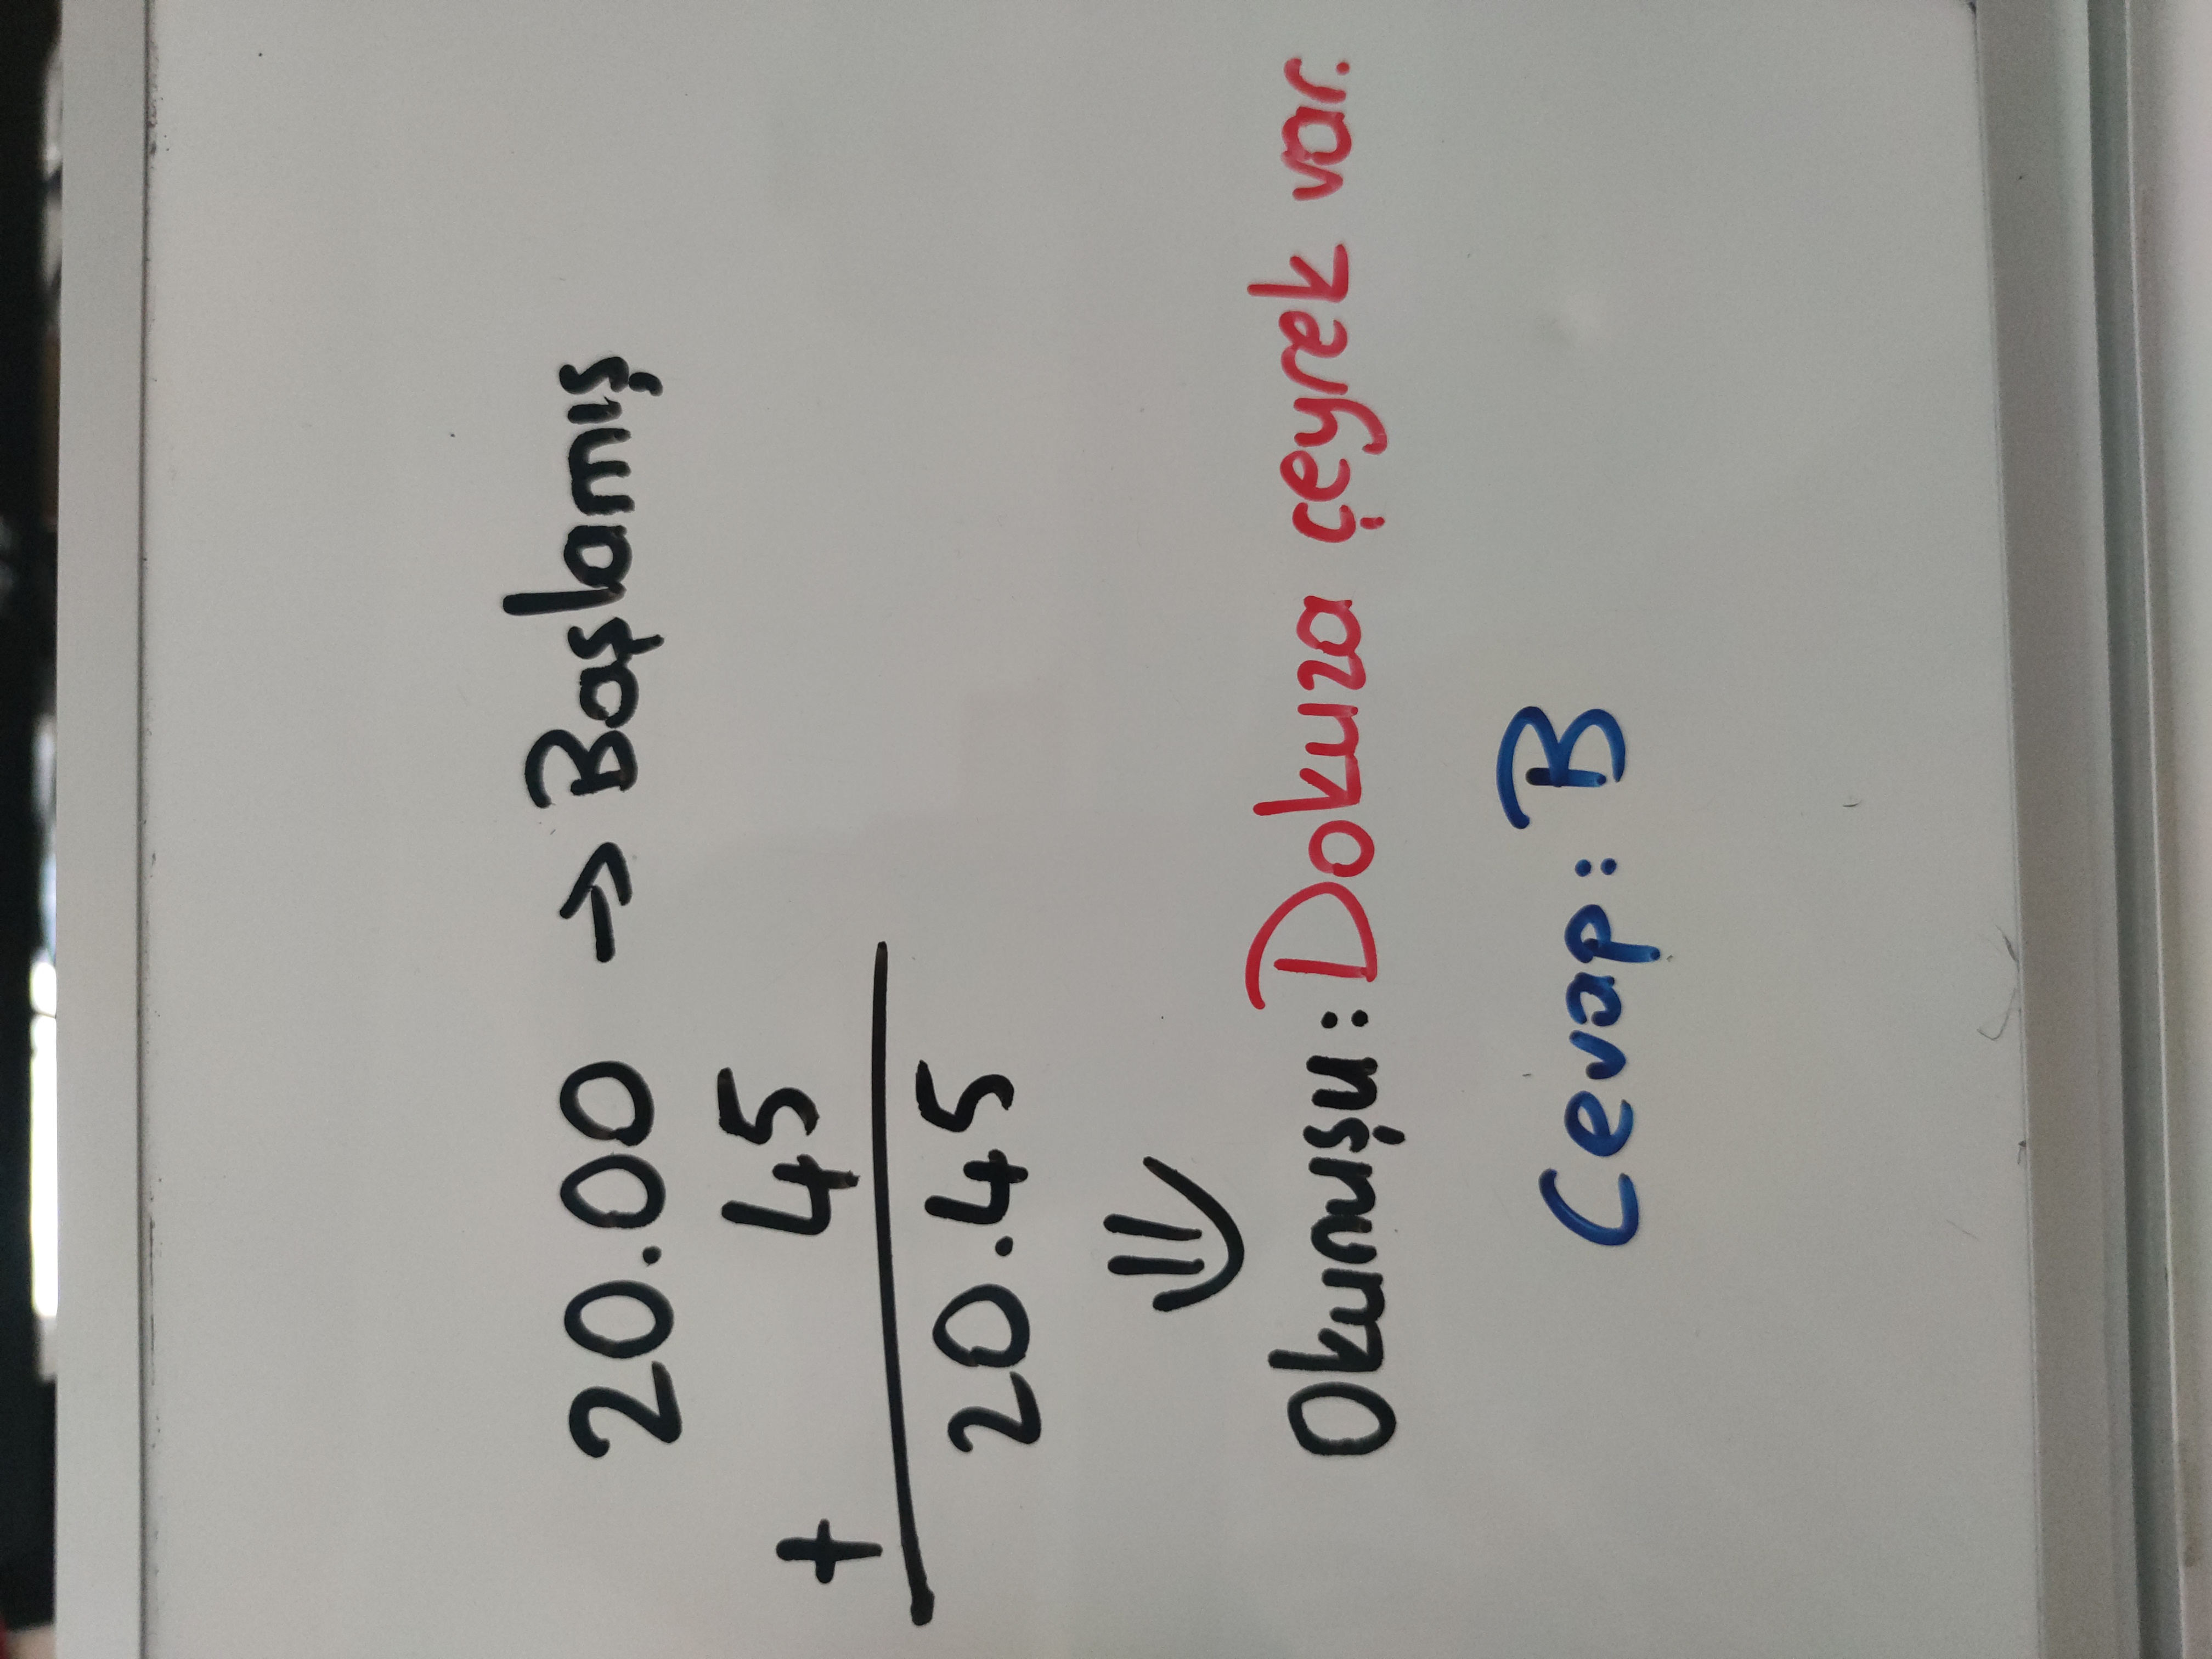 20.00 → Başlamış
+ 45
20.45
Okunuşu: Dokuza çeyrek var.
Cevap: B